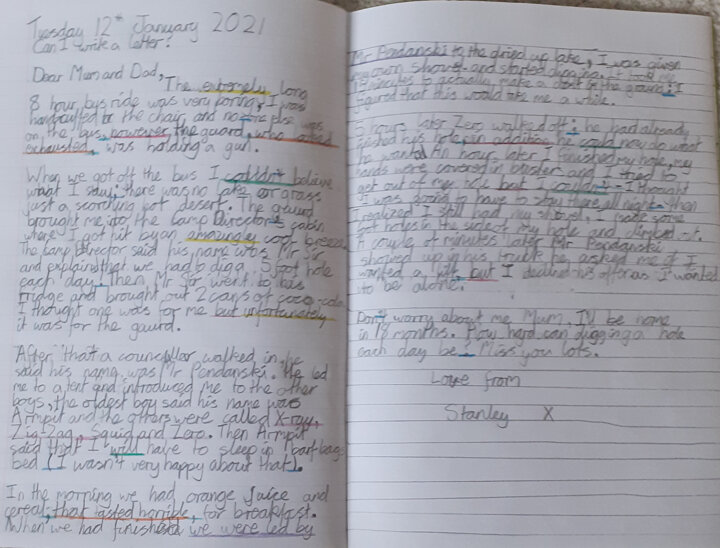 Tuesday 12th January 2021
Can I write a letter?
Dear Mum and Dad,
The extremely long
8 hour bus ride was very boring, I was
handcuffed to the chair and no one else was
on the bus, however, the guard, who looked
exhausted, was holding a gun.
When we got off the bus I couldn't believe
what I saw; there was no lake or grass
just a scorching hot desert. The guard
brought me into the Camp Director's cabin
where I got hit by an amazingly cool breeze.
The Camp Director said his name was Mr Sir
and explained that we had to dig a 5 foot hole
each day. Then Mr Sir went to his
fridge and brought out 2 cans of coca-cola.
I thought one was for me but unfortunately
it was for the gaurd.
After that a councellor walked in, he
said his name was Mr Pendanski. He led
me to a tent and introduced me to the other
boys, the oldest boy said his name was
Armpit and the others were called X-ray,
Zig Zag, Squid and Zero. Then Armpit
said that I will have to sleep in barf bag
bed (I wasn't very happy about that).
In the morning we had orange juice and
cereal, that tasted horrible, for breakfast.
When we had finished we were led by
Mr Pendanski to the dried up lake, I was given
my own shovel and started digging. It took me
15 minutes to actually make a dent in the ground; I
figured that this would take me a while.
5 hours later Zero walked off; he had already
finished his hole, in addition, he could now do what
he wanted. An hour later I finished my hole, my
hands were covered in blister and I tried to
get out of my hole but I couldn't - I thought
I was going to have to stay there all night - then
I realized I still had my shovel. I made some
foot holes in the side of my hole and climbed out.
A couple of minutes later Mr Pendanski
showed up in his truck, he asked me if I
wanted a lift, but I declined his offer as I wanted
to be alone.
Don't worry about me Mum, I'll be home
in 18 months. How hard can digging a hole
each day be. Miss you lots.
Love from
Stanley X